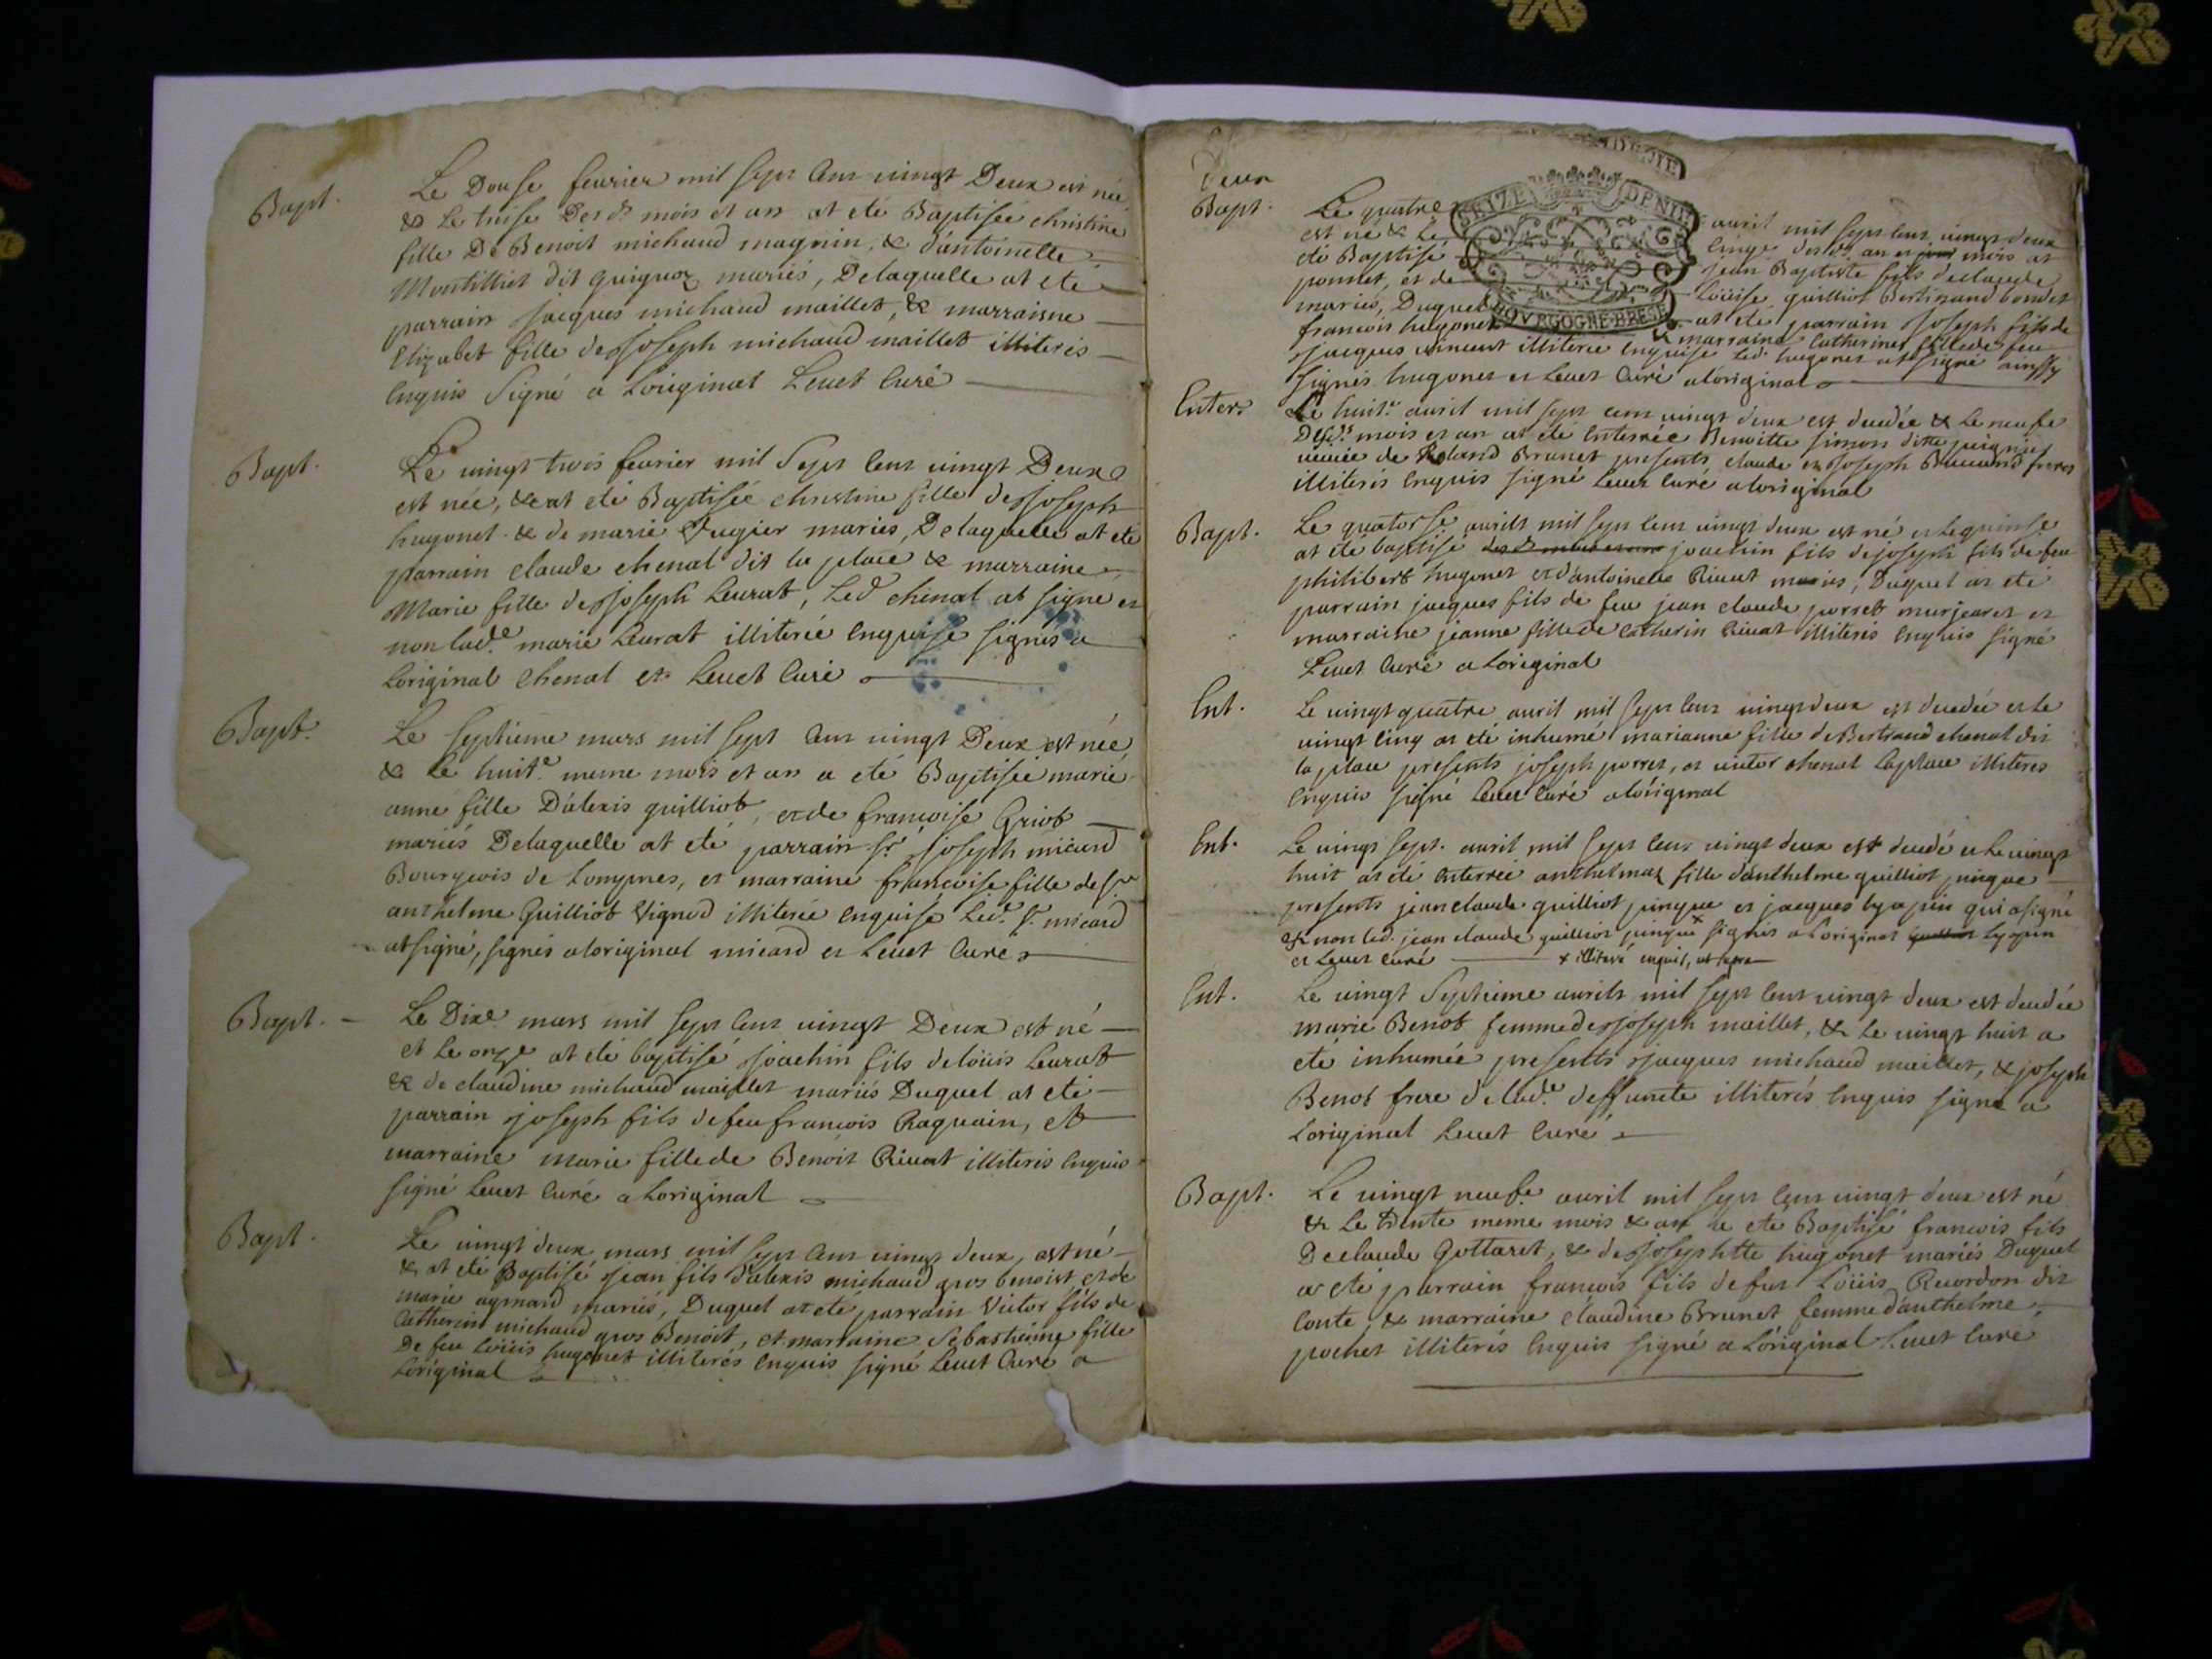 Bapt.
Le Douse feurier mil sept Cent vingt Deux est née
& Le treise Des ds mois et an at eté Baptisée christine
fille De Benoit michaud magnin, & d'antoinette
Montillier dit guignoz mariés, De laquelle at ete
parrain jacques michaud maillet, & marraisne
Elizabet fille de joseph michaud maillet illiterés
Enquis Signé a Loriginal Levet Curé
Bapt.
Le vingt trois feurier mil Sept Cent vingt Deux
est née, & at eté Baptisée christine fille de joseph
hugonet & de marie Fugier mariés, De laquelle at eté
parrain claude chenal dit la place & marraine
Marie fille de joseph Leurat, Led chenal at signe et
non lad.e marie Leurat illiterée Enquise signés a
Loriginal Chenal et Levet Curé
Bapt.
Le septieme mars mil sept Cent vingt Deux est née
& Le huit.e meme mois et an a eté Baptisée marie
anne fille D'alexis guilliot, et de francoise Griot
mariés De laquelle at eté parrain sr. joseph micard
Bourgeois de Lompnes, et marraine francoise fille de sr
anthelme Guilliot Vignod illiterée Enquise Led. sr. micard
at signé, signés a loriginal micard et Levet Curé
Bapt.
Le Dixe mars mil sept Cent vingt Deux est né
et Le onze at eté baptisé joachin fils de loüis Leurat
& de claudine michaud maillet mariés Duquel at eté
parrain joseph fils de feu francois Raquain, et
marraine marie fille de Benoit Rivat illiterés Enquis
signé Levet Curé a Loriginal
Bapt.
Le vingt deux mars mil sept Cent vingt deux, est né
& at eté Baptisé jean fils d'alexis michaud gros benoist et de
marie aymard mariés, Duquel at eté parrain Victor fils de
Catherin michaud gros Benoit, et marraine Sebastienne fille
De feu Loüis hugonet illiterés Enquis signé Levet Curé a
Loriginal
Deux
SEIZE DENIE
BOVRGOGNE-BRESE
Bapt.
Le quatre avril mil sept Cent vingt deux
est né & Le Cinqe des ds. an et jour mois at
eté Baptisé jean Baptiste fils de claude
ponset, et de Loüise guilliot Bertinand bondet
mariés, Duquel at eté parrain joseph fils de
francois hugonet & marraine Catherine fille de feu
jacques vincent illiterée Enquise Led. hugonet at signé aussy
signés hugonet et Levet Curé a loriginal
Enter.
Le huit.e avril mil sept cent vingt deux est decedée & Le neufe
Des ds mois et an at eté Enterrée Benoitte simon ditte
veuve de Roland Brunet presents claude et joseph Brunet freres
illiterés Enquis signé Levet Curé a loriginal
Bapt.
Le quatorse avril mil sept Cent vingt deux est né et le quinse
at eté baptisé joachin fils de joseph fils de feu
philibert hugonet et d'antoinette Rivat mariés, Duquel at eté
parrain jacques fils de feu jean claude porret murjaret et
marraine jeanne fille de Catherin Rivat illiterés Enquis signé
Levet Curé a Loriginal
Ent.
Le vingt quatre avril mil sept Cent vingt deux est decedée et Le
vingt Cinq at eté inhumé marianne fille de Bertrand chenal dit
la place presents joseph porret, et victor chenal Laplace illiteres
Enquis signé Levet Curé a loriginal
Ent.
Le vingt sept. avril mil sept Cent vingt deux est decedé et Le vingt
huit at eté Enterrée anthelmaz fille d'anthelme guilliot pinque
presents jean claude guilliot pinque et jacques lyapin qui a signé
& non led. jean claude guilliot pinque x signés a Loriginal Lyapin
et Levet Curé x illiteré enquis, ut supra
Ent.
Le vingt Septieme avril mil sept Cent vingt deux est decedée
marie Benot femme de joseph maillet, & Le vingt huit a
eté inhumée presents jacques michaud maillet, & joseph
Benot frere de lad.e deffuncte illiterés Enquis signé a
Loriginal Levet Curé
Bapt.
Le vingt neufe avril mil sept Cent vingt deux est né
& Le trente meme mois & an at eté Baptisé francois fils
De claude Gottaret, & de josephtte hugonet mariés Duquel
at eté parrain francois fils de feu Loüis Reverdon dit
Conte & marraine claudine Brunet femme d'anthelme
pochet illiterés Enquis signé a Loriginal Levet Curé